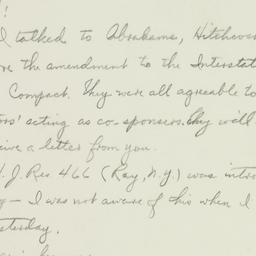 !
I talked to Abrahams, Hitchcoc
re the amendment to the Interstat
Compact. They were all agreeable to
ors' acting as co-sponsors. They will
eive a letter from you.
H. J. Res 466 (Ray, N.Y.) was intro
y — I was not aware of this when I
esterday.